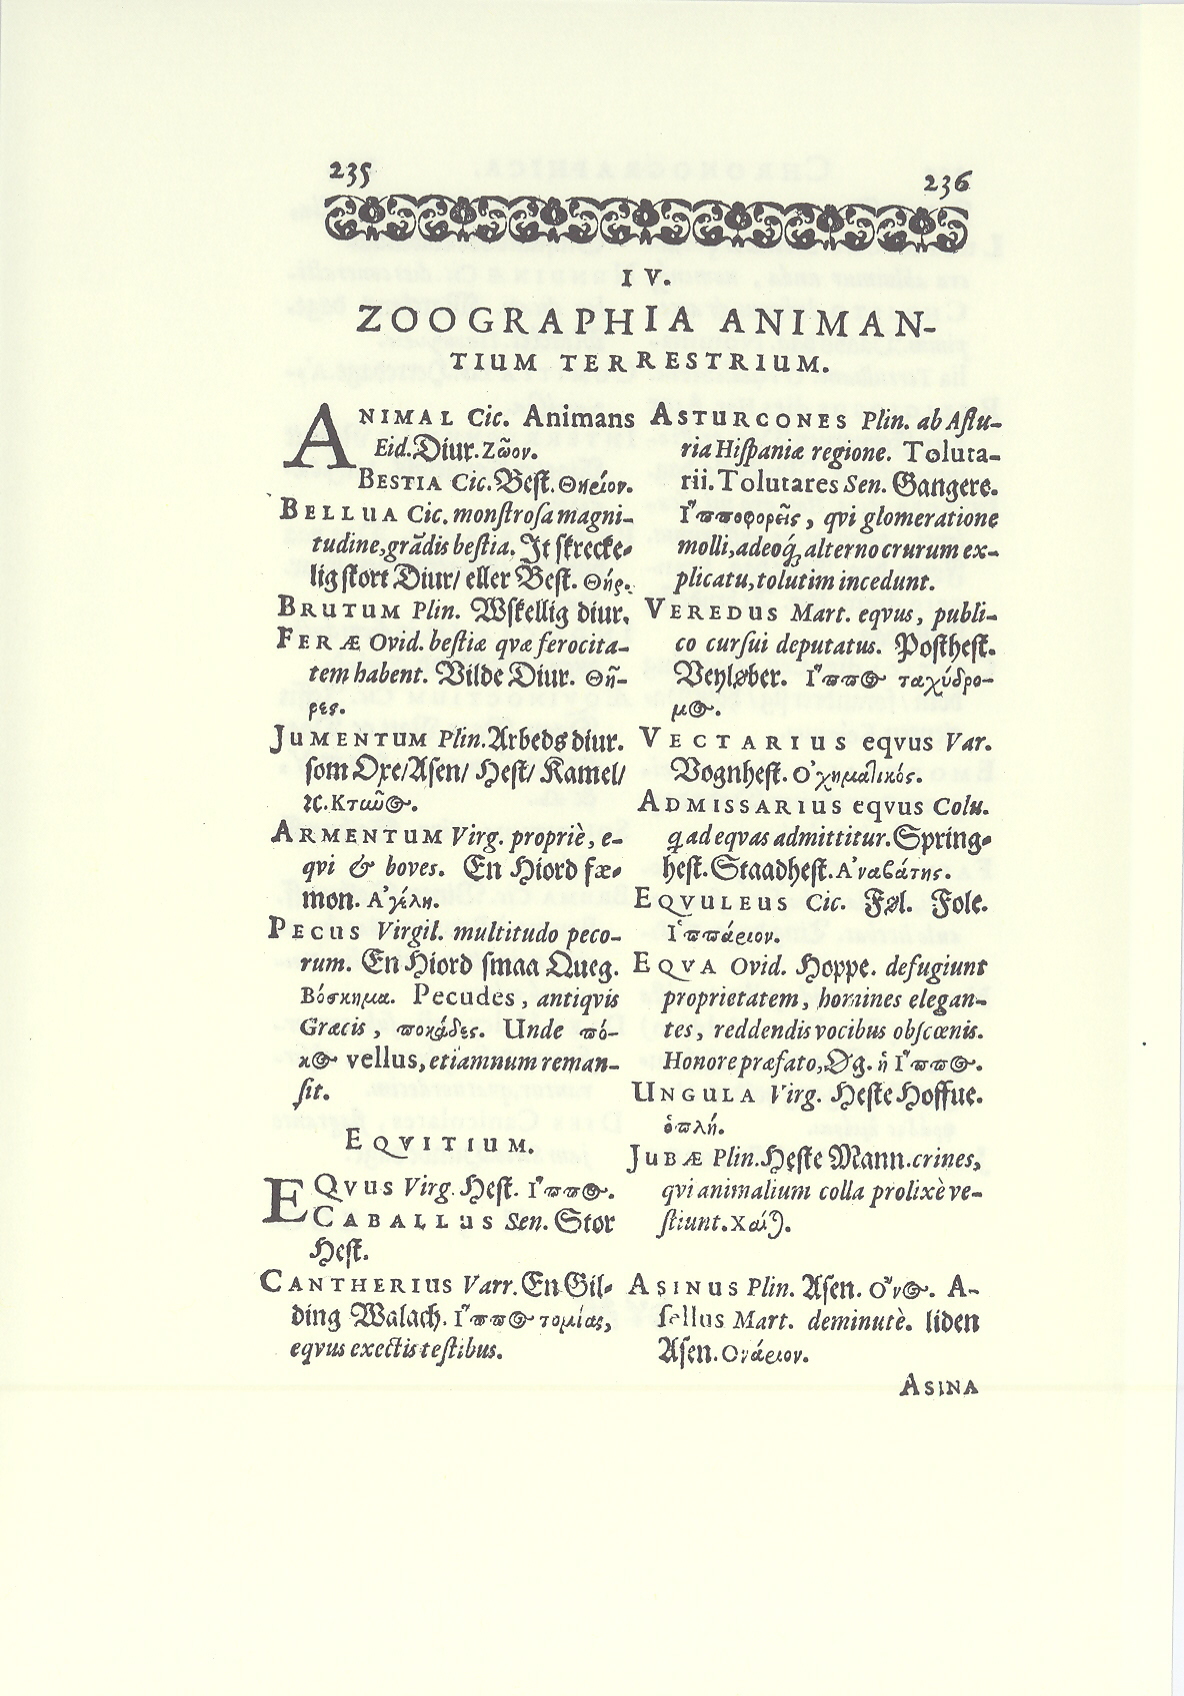 235
236
IV.
ZOOGRAPHIA ANIMAN-
TIUM TERRESTRIUM.
ANIMAL Cic. Animans
Eid. Diur. Ζῶον.
BESTIA Cic. Best. Θηρίον.
BELLUA Cic. monstrosa magni-
tudine, grãdis bestia. It skrecke-
lig stort Diur/ eller Best. Θής.
BRUTUM Plin. Wskellig diur.
FERÆ Ovid. bestiæ qvæ ferocita-
tem habent. Vilde Diur. Θῆ-
ρες.
JUMENTUM Plin. Arbeds diur.
som Oxe/ Asen/ Hest/ Kamel/
ꝛc. Κτῶος.
ARMENTUM Virg. propriè, e-
qvi & boves. En Hiord fæ-
mon. Ἀγέλη.
PECUS Virgil. multitudo peco-
rum. En Hiord smaa Queg.
Βόσκημα. Pecudes, antiqvis
Græcis, ποκάδες. Unde πό-
κος vellus, etiamnum reman-
sit.
EQVITIUM.
EQVUS Virg. Hest. Ἵππος.
CABALLUS Sen. Stor
Hest.
CANTHERIUS Varr. En Gil-
ding Walach. Ἵππος τομίας,
eqvus exectis testibus.
ASTURCONES Plin. ab Astu-
ria Hispaniæ regione. Toluta-
rii. Tolutares Sen. Gangere.
Ἱπποφορεῖς, qvi glomeratione
molli, adeoq́; alterno crurum ex-
plicatu, tolutim incedunt.
VEREDUS Mart. eqvus, publi-
co cursui deputatus. Posthest.
Veyløber. Ἵππος ταχύδρο-
μος.
VECTARIUS eqvus Var.
Vognhest. Ὀχηματικός.
ADMISSARIUS eqvus Colu.
q ad eqvas admittitur. Spring-
hest. Staadhest. Ἀναβάτης.
EQVULEUS Cic. Føl. Fole.
Ἱππάριον.
EQVA Ovid. Hoppe. defugiunt
proprietatem, homines elegan-
tes, reddendis vocibus obscœnis.
Honore præfato, Øg. ἡ Ἵππος.
UNGULA Virg. Heste Hoffue.
ὁπλή.
JUBÆ Plin. Heste Mann. crines,
qvi animalium colla prolixè ve-
stiunt. Χαίτη.
ASINUS Plin. Asen. Ὄνος. A-
sellus Mart. deminutè. liden
Asen. Ονάριον.
ASINA